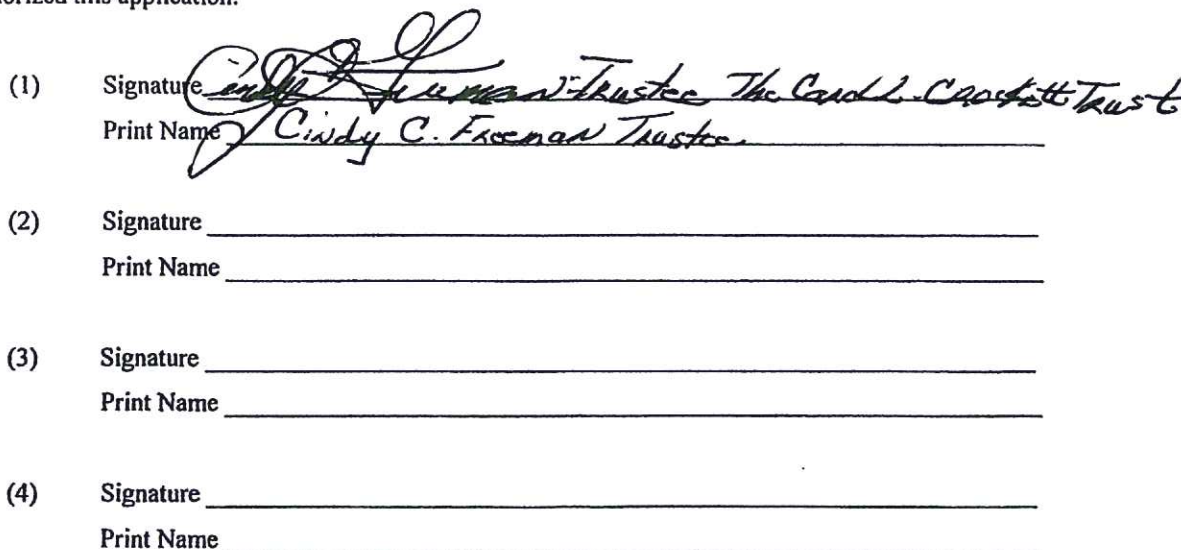 this application.
(1) Signature Cindy C. Freeman - Trustee The Carol L. Crockett Trust
Print Name Cindy C. Freeman Trustee
(2) Signature
Print Name
(3) Signature
Print Name
(4) Signature
Print Name